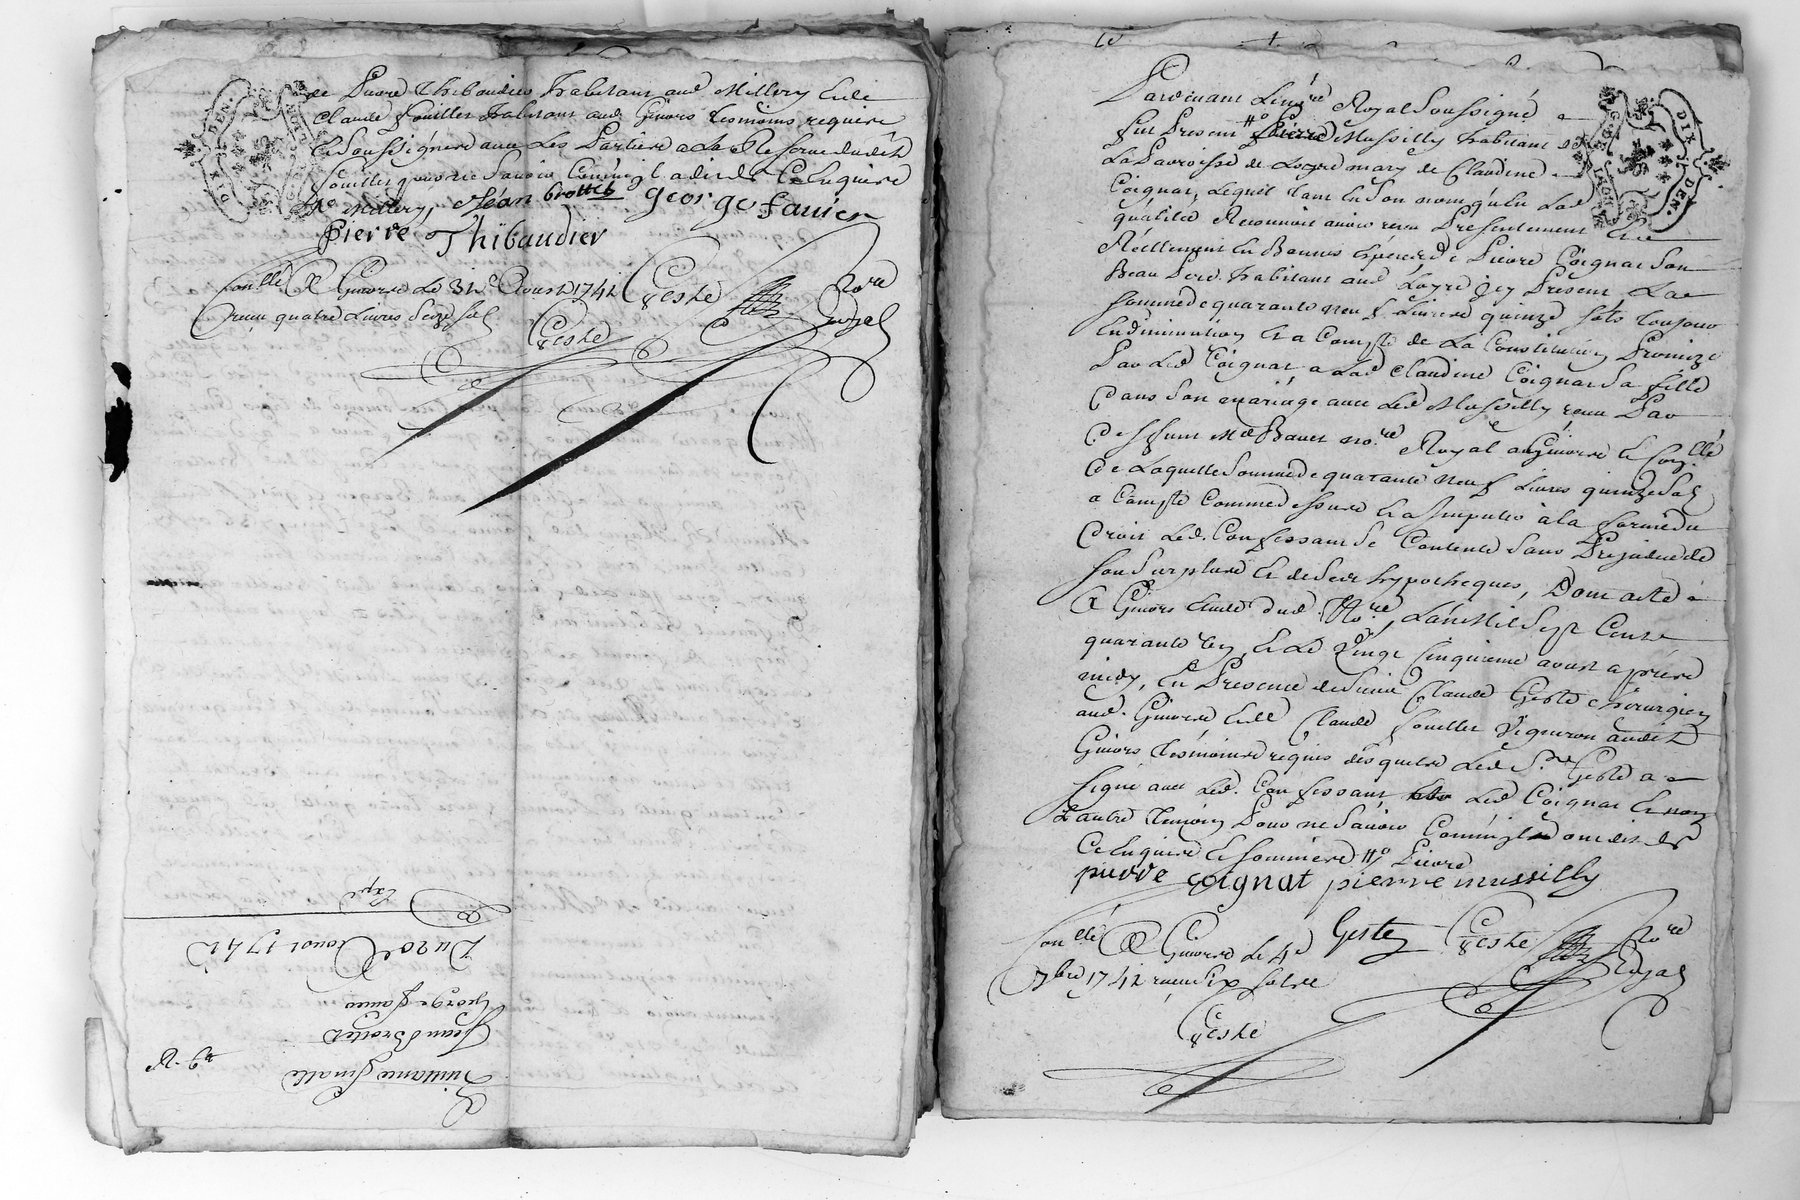 de Pierre Thibaudier habitant aud Millery et de
Claude fouillet habitant aud Givors tesmoins requis
et Soussignéz avec Les Parties a La Reserve dudit
fouillet pour ne Scavoir Comme jl a dit de Ce Enquis
Millery, Jean brottet george favier
pierre Thibaudier
Conllé A Givors Le 31e Aoust 1742 Geste Nore
receu quatre Livres Seize sols Royal
Geste
Expé
Du 20e Aoust 1742
George favier
Jean Brottet
Quittance finale
Pardevant Le nore Royal Soussigné
fut Present Pierre Mussilly habitant de
La Parroisse de Loyre mary de Claudine
Coignat, Lequel tant en Son nom qu'en Lad
qualité Reconnoit avoir receu Presentement et
Réellement en Bonnes Espéces de Pierre Coignat Son
Beau Pere habitant aud Loyre jcy Présent La
somme de quarante neuf Livres quinze sols toujours
En diminution et a Compte de La Constitution Promize
Par Led Coignat a Lad Claudine Coignat Sa fille
Dans Son mariage avec Led Mussilly receu Par
Deffunt Me Bavet nore Royal aud Givors et Conllé
De Laquelle Somme de quarante neuf Livres quinze sols
a Compte Comme dessus et a Imputer à la forme du
Droit Led. Confessant Se Contente Sans Préjudice de
Son Surplus et de Ses hypotheques, Dont acte
A Givors Etude dud. Nore, L'an Mil Sept Cents
quarante deux et Le Vingt Cinquieme aoust aprés
midy, En Presence de Sieur Claude Geste chirurgien
aud. Givors et de Claude fouillet Vigneron audit
Givors tesmoins requis desquels Led Sr Geste a
signé avec Led. Confessant Led Coignat et non
L'autre témoin Pour ne Scavoir Comme jl ont dit de
Ce Enquis et sommés Pierre
pierre coignat pierre mussilly
Geste Geste Nore
Royal
Conllé A Givors Le 4e
7bre 1742 receu dix sols
Geste